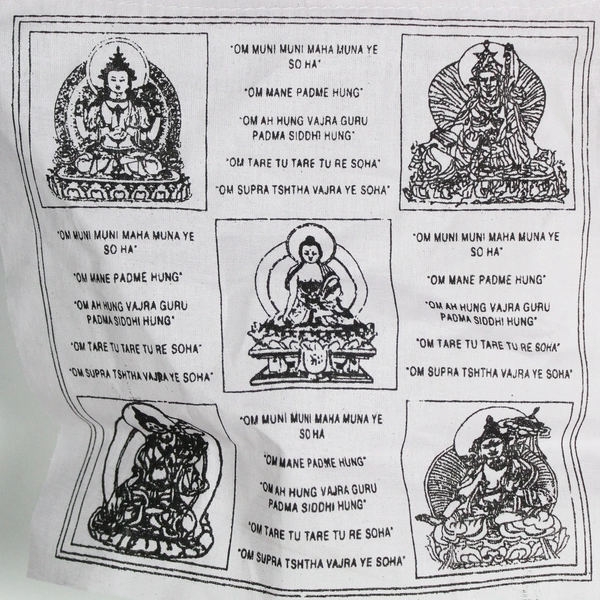 "OM MUNI MUNI MAHA MUNA YE
SO HA"
"OM MANE PADME HUNG"
"OM AH HUNG VAJRA GURU
PADMA SIDDHI HUNG"
"OM TARE TU TARE TU RE SOHA"
"OM SUPRA TSHTHA VAJRA YE SOHA"
"OM MUNI MUNI MAHA MUNA YE
SO HA"
"OM MANE PADME HUNG"
"OM AH HUNG VAJRA GURU
PADMA SIDDHI HUNG"
"OM TARE TU TARE TU RE SOHA"
"OM SUPRA TSHTHA VAJRA YE SOHA"
"OM MUNI MUNI MAHA MUNA YE
SO HA"
"OM MANE PADME HUNG"
"OM AH HUNG VAJRA GURU
PADMA SIDDHI HUNG"
"OM TARE TU TARE TU RE SOHA"
"OM SUPRA TSHTHA VAJRA YE SOHA"
"OM MUNI MUNI MAHA MUNA YE
SO HA
"OM MANE PADME HUNG"
"OM AH HUNG VAJRA GURU
PADMA SIDDHI HUNG"
"OM TARE TU TARE TU RE SOHA"
"OM SUPRA TSHTHA VAJRA YE SOHA"